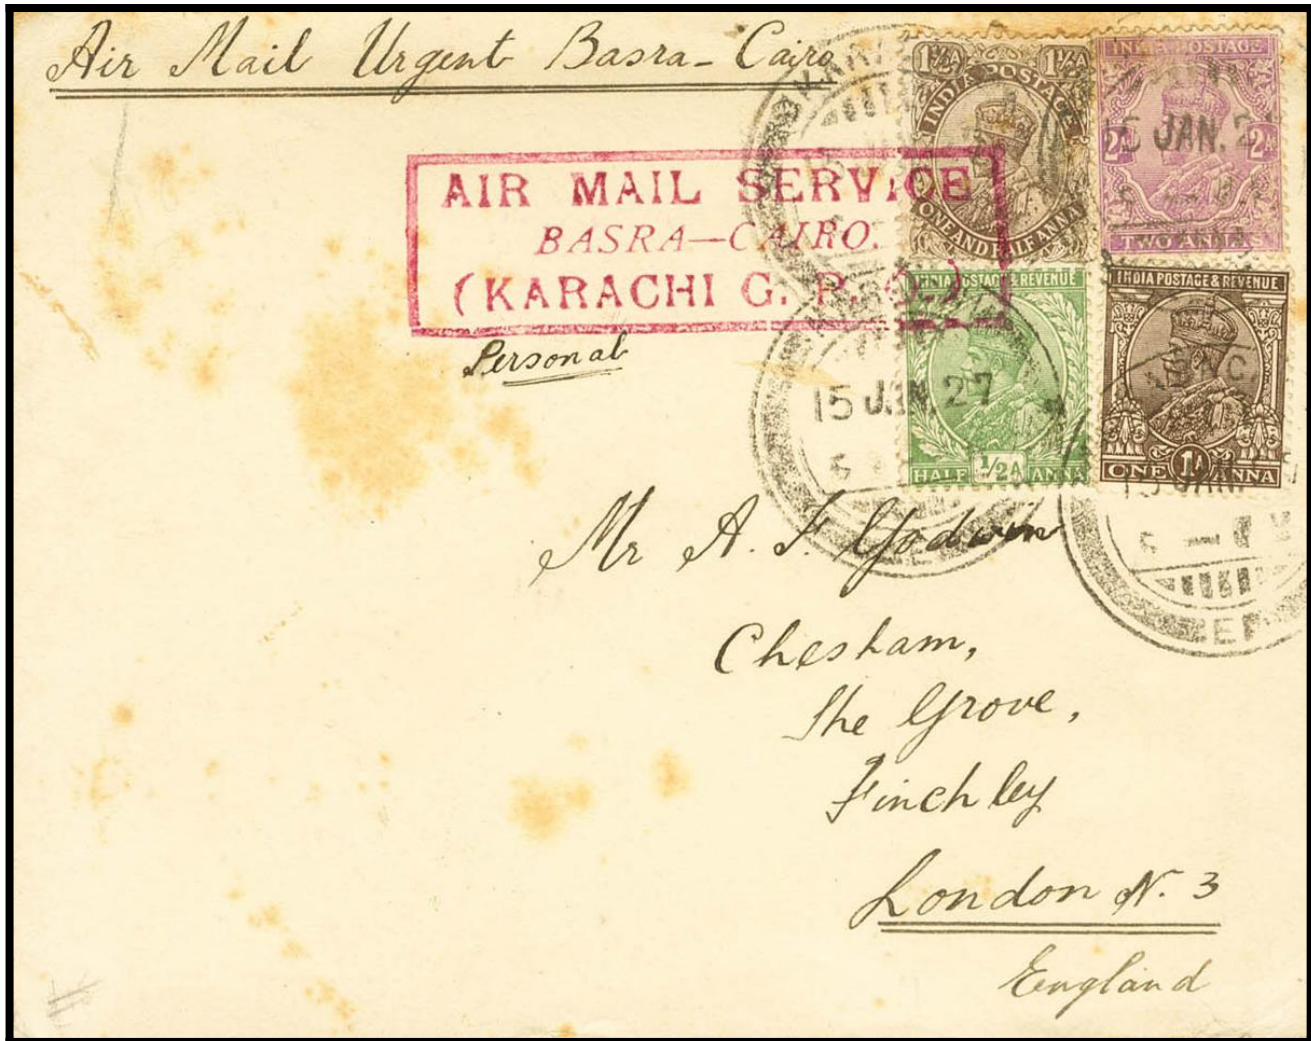 Air Mail Urgent Basra - Cairo
AIR MAIL SERVICE
BASRA—CAIRO.
(KARACHI G. P. O.)
Personal
1½A 1½A
INDIA POSTAGE
ONE AND HALF ANNA
INDIA POSTAGE
2A 2A
TWO ANNAS
15 JAN. 2
INDIA POSTAGE & REVENUE
HALF ½A ANNA
15 JAN. 27
INDIA POSTAGE & REVENUE
ONE 1A ANNA
15 JAN.
Mr A. F. Godwin
Chesham,
The Grove,
Finchley
London N. 3
England